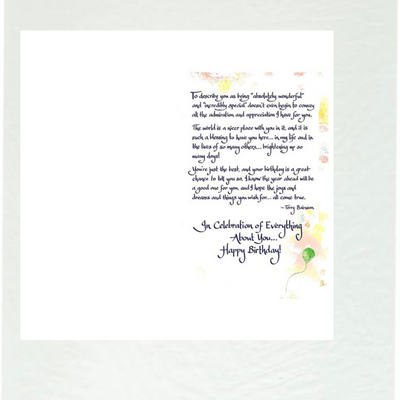 To describe you as being "absolutely wonderful"
and "incredibly special" doesn't even begin to convey
all the admiration and appreciation I have for you.
The world is a nicer place with you in it, and it is
such a blessing to have you here... in my life and in
the lives of so many others... brightening up so
many days!
You're just the best, and your birthday is a great
chance to tell you so. I know the year ahead will be
a good one for you, and I hope the joys and
dreams and things you wish for... all come true.
~ Terry Bairnson
In Celebration of Everything
About You...
Happy Birthday!